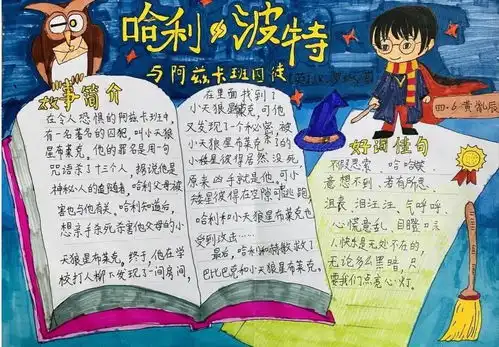 哈利波特
与阿兹卡班囚徒
四.6 黄
故事简介
在令人恐惧的阿兹卡班中,
有一名著名的囚犯,叫小天狼
星布莱克,他的罪名是用一句
咒语杀了十三个人,据说他是
神秘人的追随者,哈利父母被
害也与他有关。哈利知道后,
想亲手杀死杀害他父母的小
天狼星布莱克。终于,他在学
校打人柳下发现了一间房间,
在里面找到了
小天狼星布莱克,可他
又发现了一个秘密,被
小天狼星布莱克杀了的
小矮星彼得居然没死
原来凶手就是他,可小
矮星彼得在空隙中逃跑
哈利和小天狼星布莱克也
受到攻击……
最后,哈利和赫敏救了
巴比巴克和小天狼星布莱克。
好词佳句
不假思索 哈哈
意想不到 若有所思
沮丧 泪汪汪 气呼呼
心慌意乱 目瞪口
人快乐是无处不在的,
无论多么黑暗,只
要我们点亮心灯。